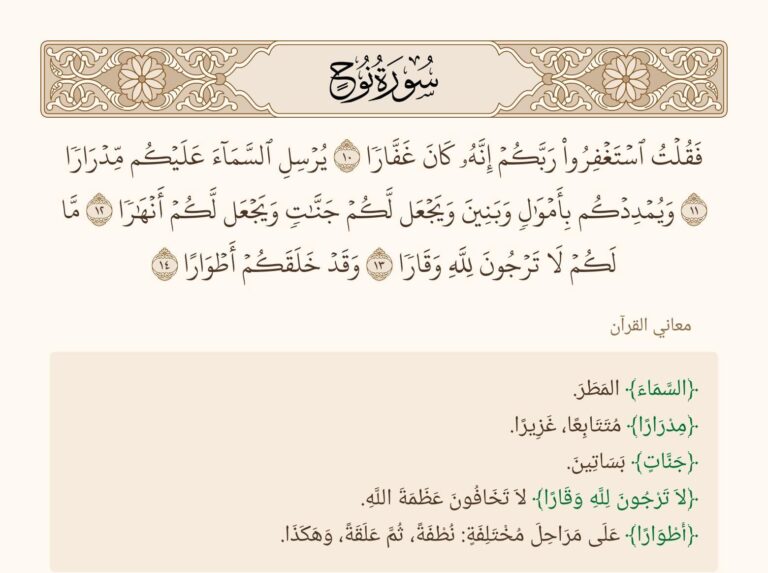 سُورَةُ نُوحٍ
فَقُلۡتُ ٱسۡتَغۡفِرُواْ رَبَّكُمۡ إِنَّهُۥ كَانَ غَفَّارٗا ١٠ يُرۡسِلِ ٱلسَّمَآءَ عَلَيۡكُم مِّدۡرَارٗا
١١ وَيُمۡدِدۡكُم بِأَمۡوَٰلٖ وَبَنِينَ وَيَجۡعَل لَّكُمۡ جَنَّٰتٖ وَيَجۡعَل لَّكُمۡ أَنۡهَٰرٗا ١٢ مَّا
لَكُمۡ لَا تَرۡجُونَ لِلَّهِ وَقَارٗا ١٣ وَقَدۡ خَلَقَكُمۡ أَطۡوَارًا ١٤
معاني القرآن
﴿السَّمَاءَ﴾ المَطَرَ.
﴿مِدْرَارًا﴾ مُتَتَابِعًا، غَزِيرًا.
﴿جَنَّاتٍ﴾ بَسَاتِينَ.
﴿لاَ تَرْجُونَ لِلَّهِ وَقَارًا﴾ لاَ تَخَافُونَ عَظَمَةَ اللَّهِ.
﴿أطْوَارًا﴾ عَلَى مَرَاحِلَ مُخْتَلِفَةٍ: نُطْفَةً، ثُمَّ عَلَقَةً، وَهَكَذَا.